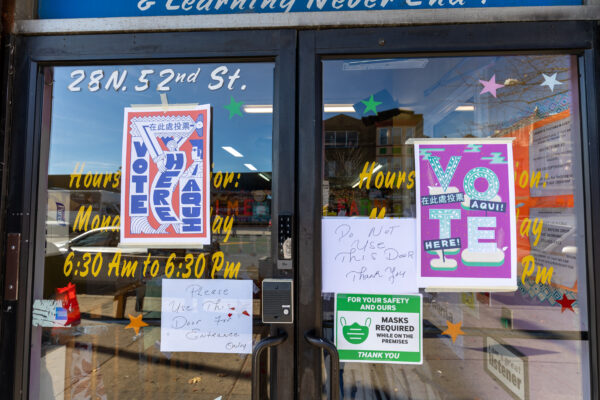 & Learning Never End!
28 N. 52nd St.
在此處投票
VOTE
HERE
¡AQUI!
Hours
or:
Mon
ay
6:30 Am to 6:30 Pm
Please
Use This
Door For
Entrance
Only
Hours
on:
Pm
Do Not
Use
This Door
Thank You
VOTE
在此處投票
AQUI!
HERE!
FOR YOUR SAFETY
MASKS
REQUIRED
WHILE ON THE
PREMISES
THANK YOU
listener